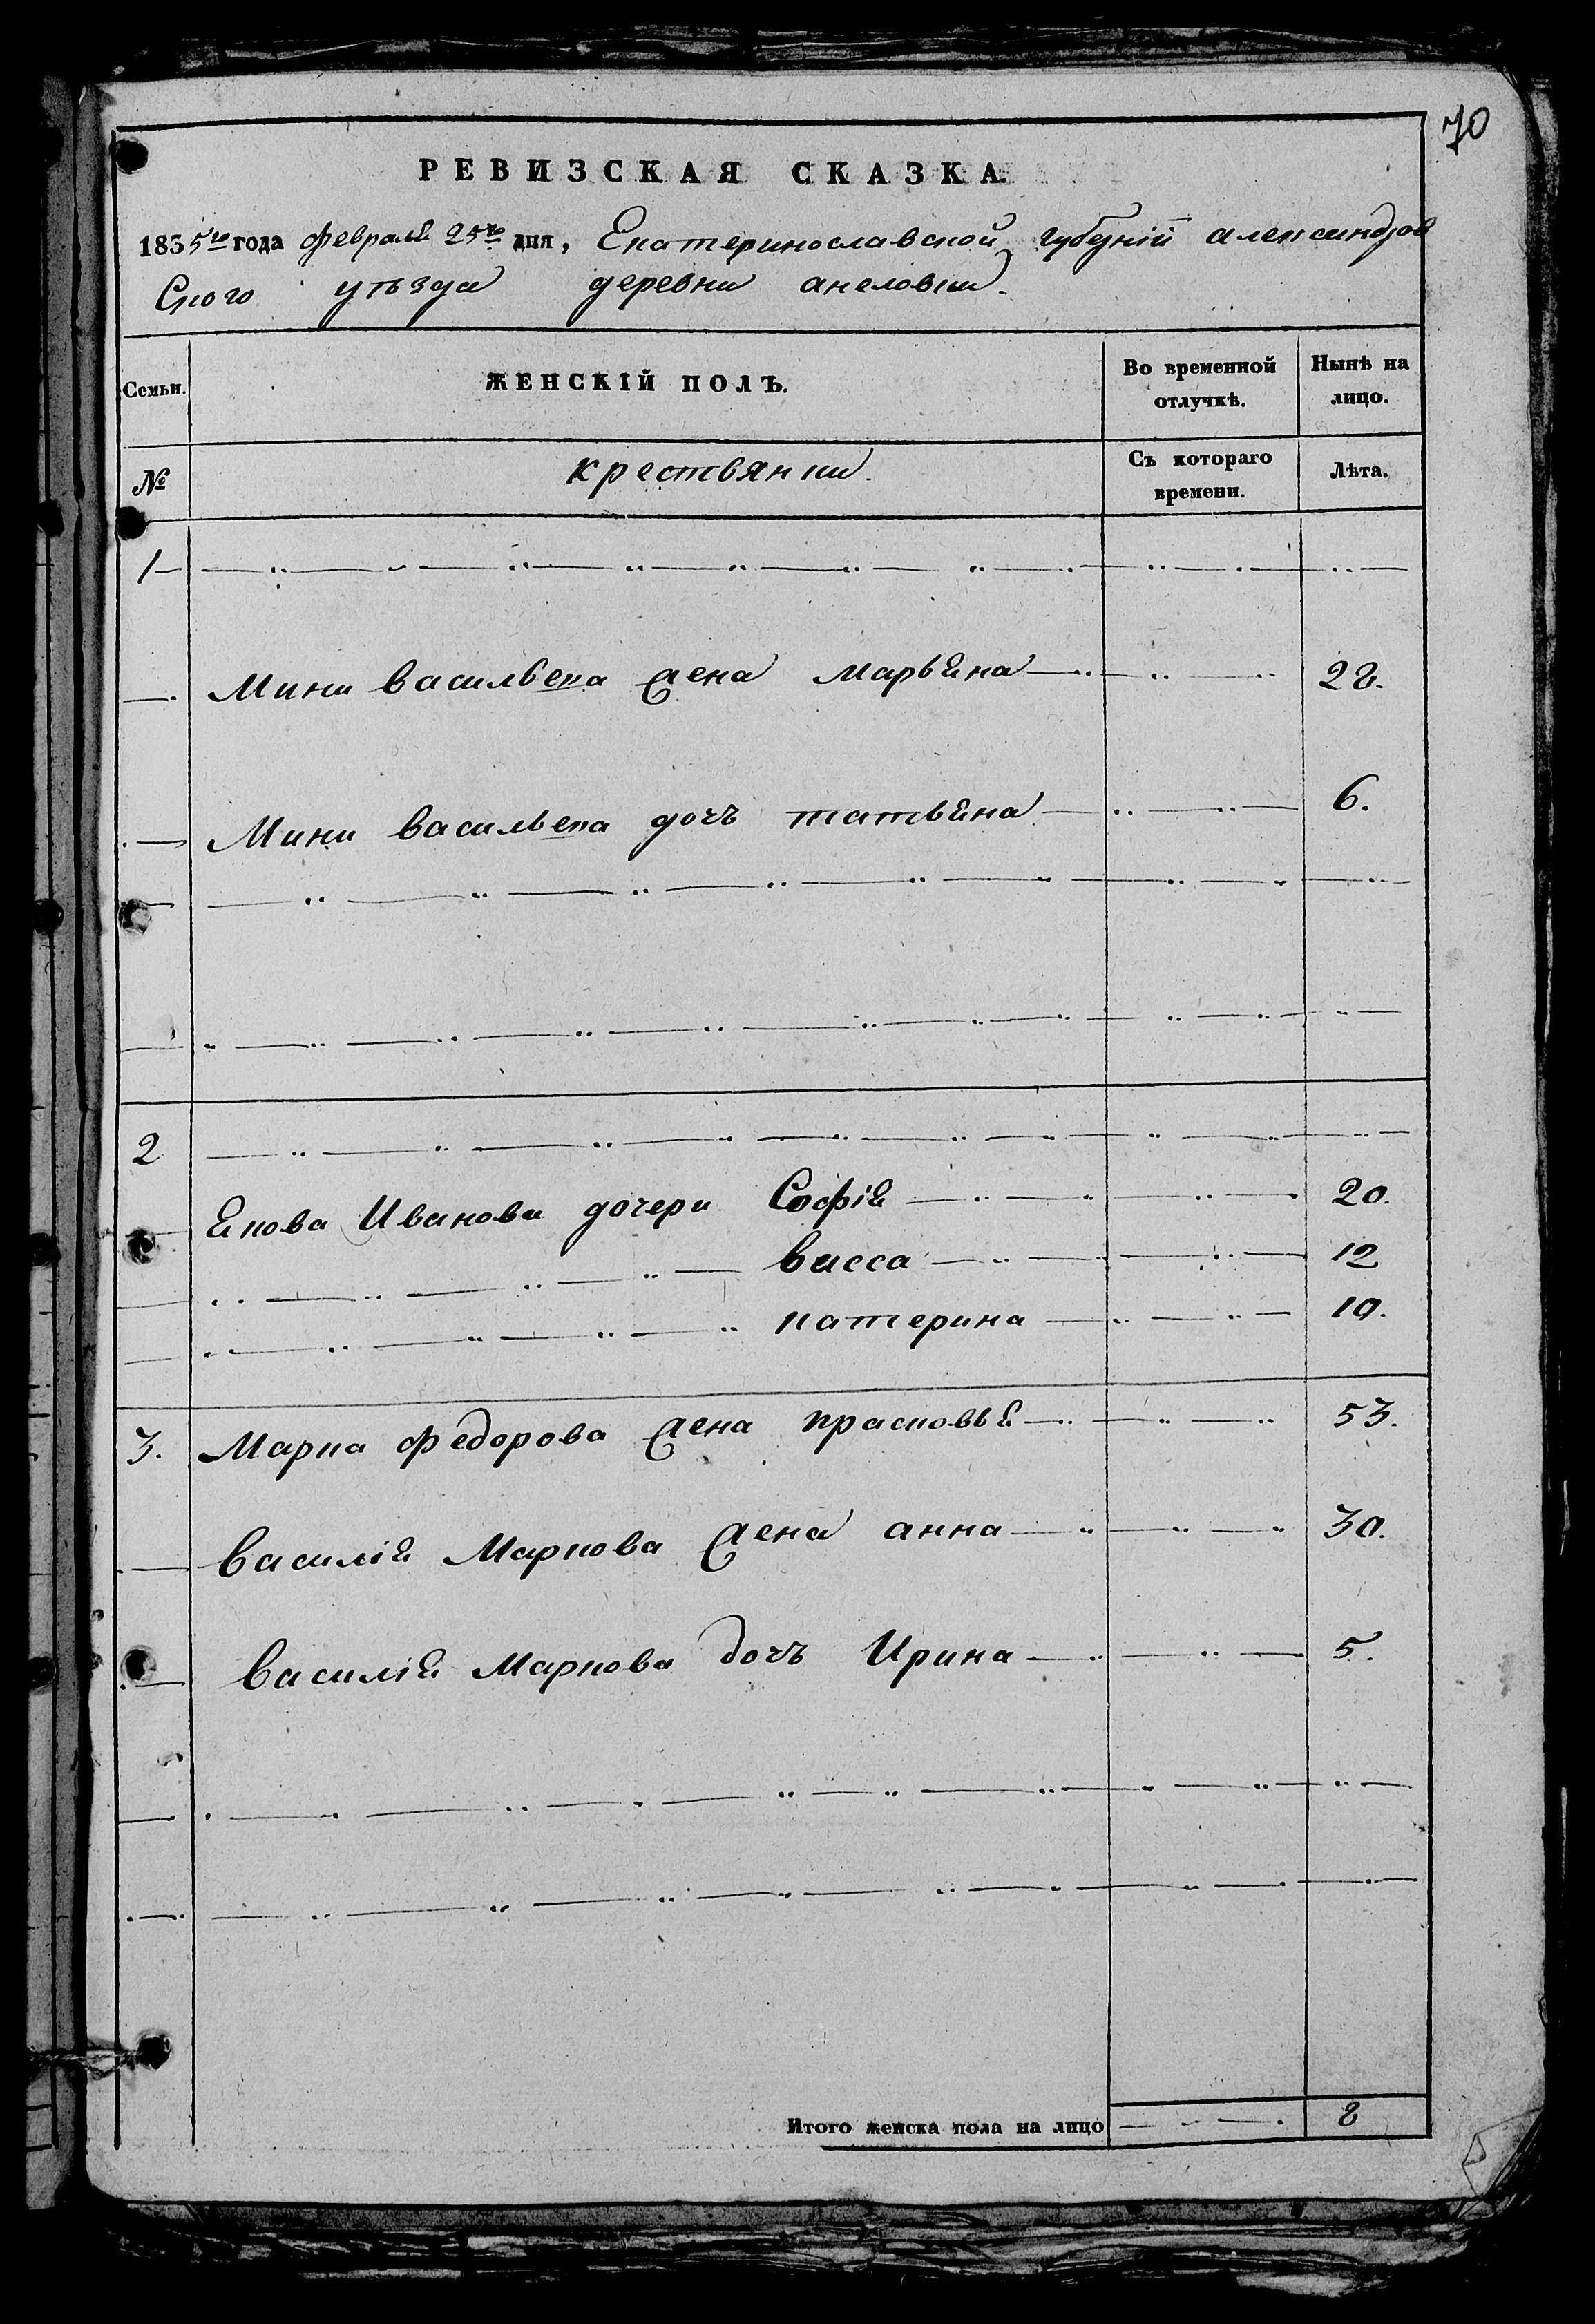 70
РЕВИЗСКАЯ СКАЗКА.
1835го года февраля 25го дня, Екатеринославской губерніи александров
Ского уѣзда деревни анеловки.
Семьи. ЖЕНСКІЙ ПОЛЪ. Во временной отлучкѣ. Нынѣ на лицо.
№ крествянки. Съ котораго времени. Лѣта.
1
Мини васильева жена марьяна 28.
Мини васильева дочъ татьяна 6.
2
Якова Иванова дочери Софія 20.
васса 12
катерина 10.
3. Марка федорова жена прасковья 53.
василія Маркова жена анна 30.
василія Маркова дочъ Ирина 5.
Итого женска пола на лицо 8